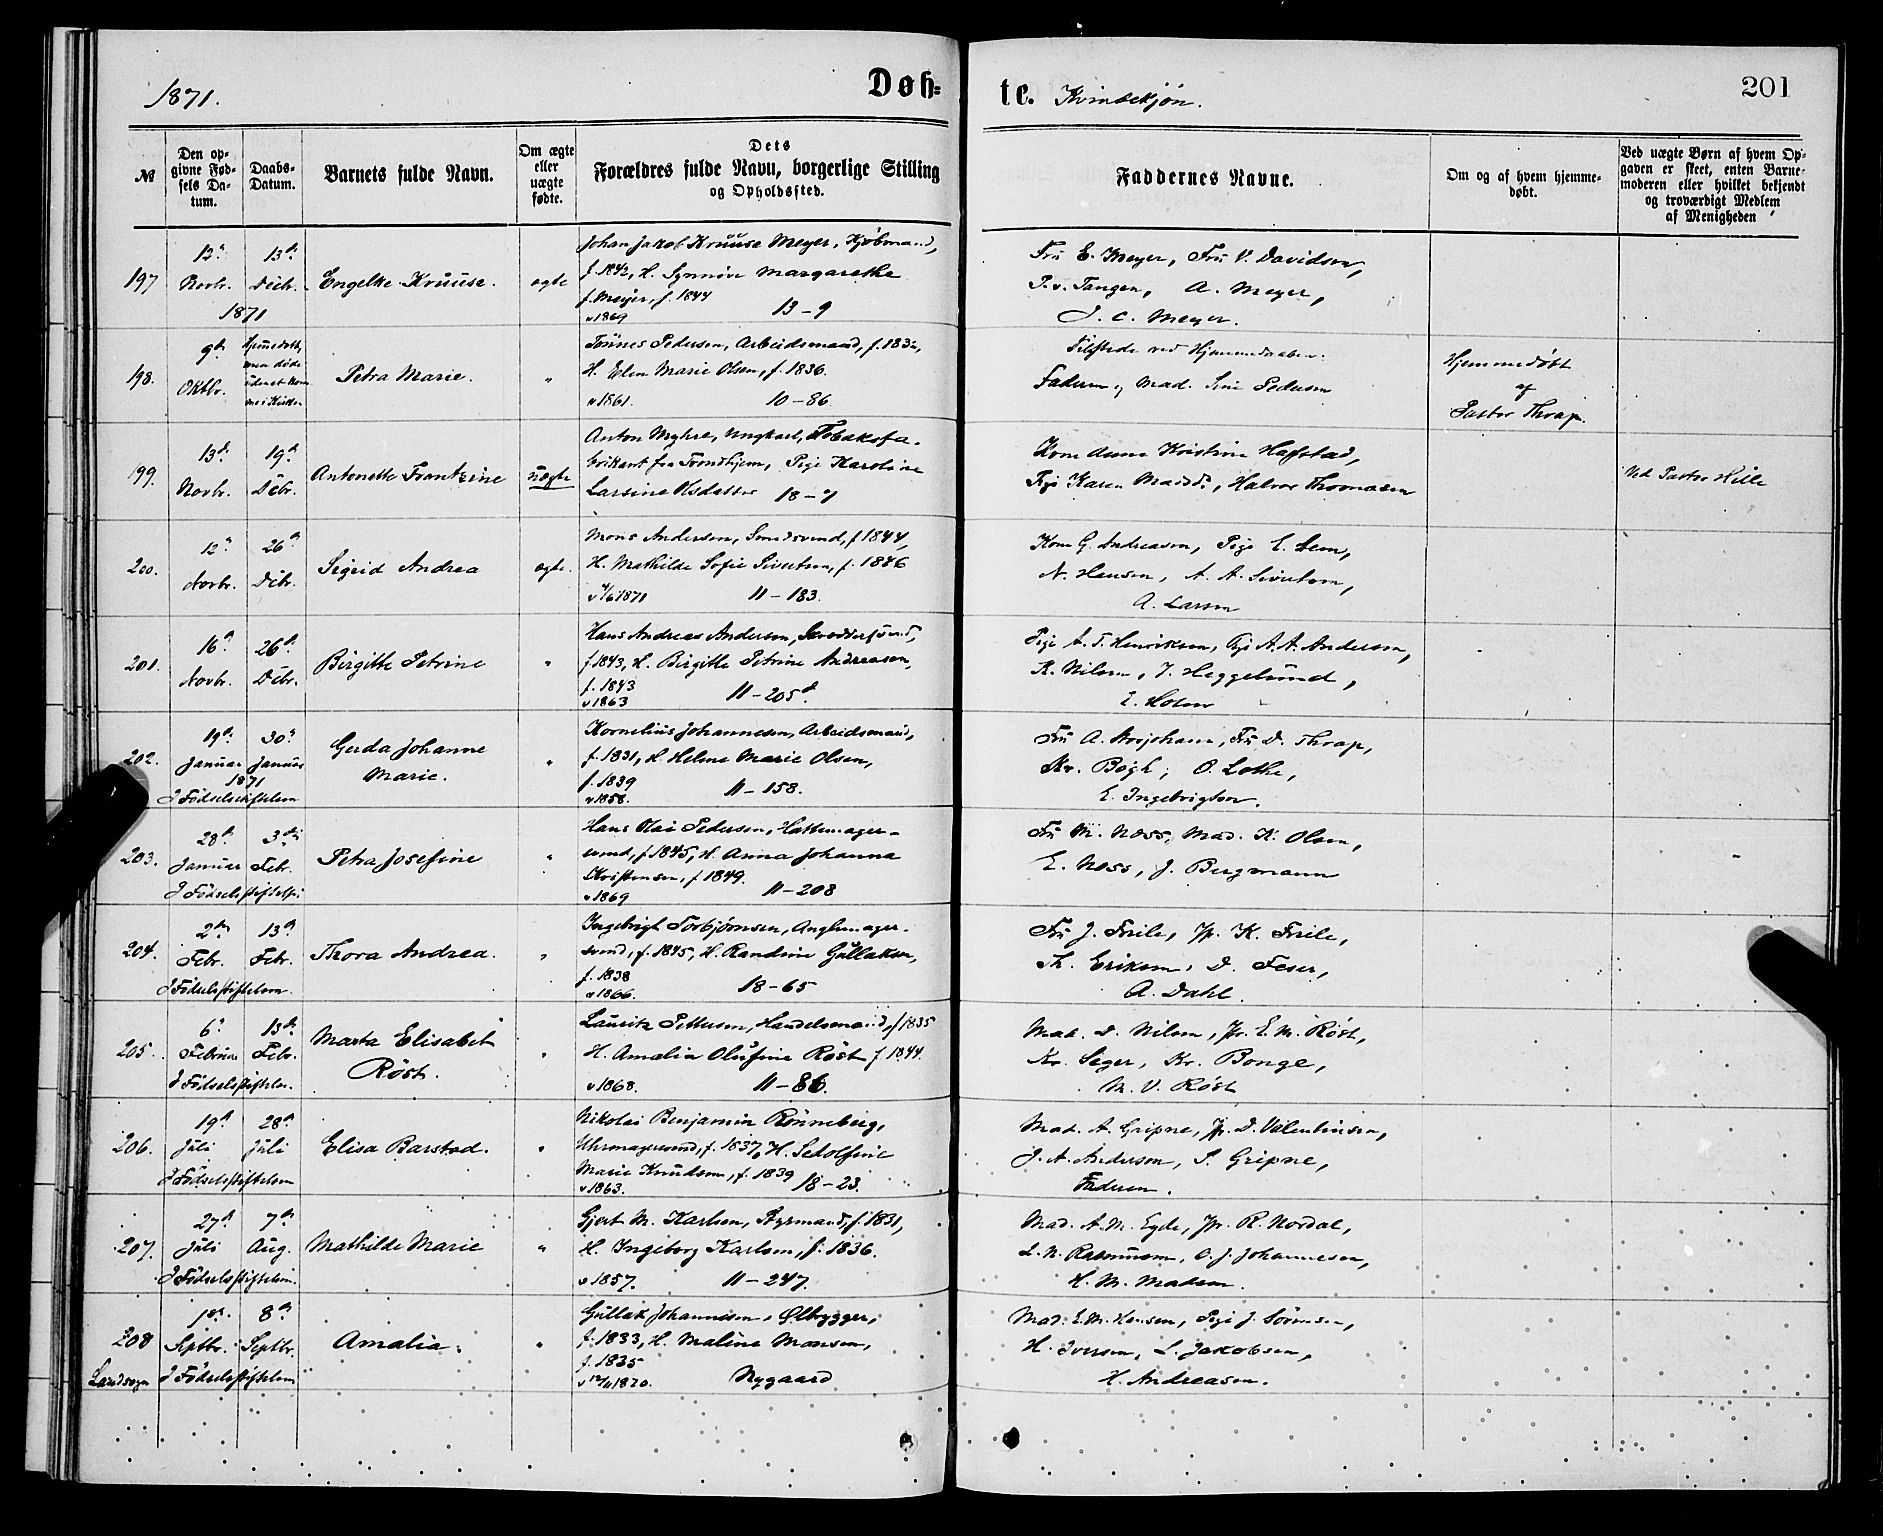 1871.
Døb-
te.
Kvindekjøn.
201
№
Den op-
givne Fød-
sels Da-
tum.
Daabs-
Datum.
Barnets fulde Navn.
Om ægte
eller
uægte
fødte.
Dets
Forældres fulde Navn, borgerlige Stilling
og Opholdssted.
Faddernes Navne.
Om og af hvem hjemme-
døbt.
Ved uægte Børn af hvem Op-
gaven er skeet, enten Barne-
moderen eller hvilket bekjendt
og troværdigt Medlem
af Menigheden
197
12te Novbr.
13de Decbr.
1871
Engelke Kruuse.
ægte
Johan Jakob Kruuse Meyer, Kjøbmand,
f. 1842, H. Synnöve Margarethe
f. Meyer, f. 1844
v 1869 13-9
Fru E. Meyer, Fru V. Davidson,
P. v. Tangen, A. Meyer,
J. C. Meyer.
198.
9de Oktbr.
Hjemmedøbt,
men døde
Petra Marie.
"
Tönnes Pedersen, Arbeidsmand, f. 1832,
H. Elen Marie Olsen, f. 1836.
v 1861. 10-86
Tilstede ved Hjemmedaaben:
Faderen, Mad. Sine Pedersen
Hjemmedøbt
af
Pastor Thrap.
199.
13de Novbr.
19de Decbr.
Antonette Frantzine
uægte
Anton Myhre, Ungkarl, Tobaksfa-
brikant fra Trondhjem, Pige Karoline
Larsine Olsdatter 18-7
Kone Anne Kristine Hafstad,
Pige Karen Madsd., Halvor Thomasen
Ved Pastor Hille
200.
12te Novbr.
26de Decbr.
Sigrid Andrea
ægte.
Mons Andersen, Smedsvend, f 1844,
H. Mathilde Sofie Sivertsen, f. 1846
v 4/6 1871 11-183.
Kone G. Andreasen, Pige E. Lem,
N. Hansen, A. A. Sivertsen,
A. Larsen
201.
16de Novbr.
26de Decbr.
Birgitte Petrine
"
Hans Andreas Andersen, Skræddersvend,
f 1843, H. Birgitte Petrine Andreasen,
f. 1843
v 1863 11-205d.
Pige A. T. Henriksen, Pige A. A. Andersen,
K. Nilsen, J. Heggelund,
202.
19de Januar
30te Januar
1871
I Födselsstiftelsen
Gerda Johanne
Marie.
"
Kornelius Johannesen, Arbeidsmand,
f. 1831, H. Helene Marie Olsen,
f. 1839
v 1858. 11-158.
Fru D. Thrap,
Kr. Bøgh, O. Lothe,
E. Ingebrigtsen.
203.
28de Januar
3die Febr.
I Födselsstiftelsen
Petra Josefine
"
Hans Olai Pedersen, Hattemager-
svend, f 1845, H. Anna Johanna
Kristensen, f 1849.
v 1869 11-208
Fru M. Noss, Mad. K. Olsen,
E. Noss, J. Bergmann
204.
2den Febr.
13de Febr.
I Födselsstiftelsen.
Thora Andrea.
"
Ingebrigt Torbjørnsen, Anglemager-
svend, f. 1845, H. Randine Gullaksen,
f. 1838
v 1866. 18-65
Fru J. Friele, Jfr. K. Friele,
Th. Eriksen, D. Feser,
A. Dahl.
205.
6te Februar
13de Febr.
I Födselsstiftelsen.
Marta Elisabet
Röst.
"
Lauritz Pettersen, Handelsmand, f 1835
H. Amalia Olufine Röst f 1844.
v 1868. 11-86.
Mad. D. Nilsen, Jfr. E. M. Röst,
Kr. Seger, Kr. Bonge,
M. V. Röst
206.
19de Juli
28de Juli
I Födselsstiftelsen
Elisa Barstad.
"
Nikolai Benjamin Rönneberg,
Uhrmagersvend, f. 1837, H. Setolfine
Marie Knudsen, f. 1839
v 1863. 18-23.
Mad. A. Gripne, Jfr. D. Valentinsen,
J. A. Andersen, S. Gripne,
Faderen.
207.
27de Juli
7de Aug.
I Födselsstiftelsen.
Mathilde Marie
"
Gjert M. Karlsen, Styrmand, f. 1831,
H. Ingeborg Karlsen, f. 1836.
v 1857. 11-247.
Mad. A. M. Eyde, Jfr. R. Nordal,
L. N. Rasmussen, O. J. Johannesen,
H. M. Madsen.
208
Landsogn
1ste Septbr.
8de Septbr.
I Födselsstiftelsen
Amalia.
"
Gullak Johannesen, Ølbrygger,
f. 1833, H. Maline Monsen,
f. 1835
v 12/11 1870. Nygaard
Mad. E. M. Hansen, Pige J. Sörensen,
H. Iversen, L. Jakobsen,
H. Andreasen.